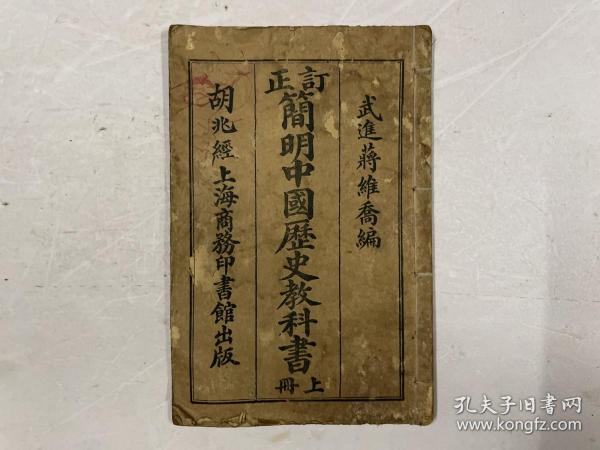 武進蔣維喬編
訂正
簡明中國歷史教科書
上冊
胡兆經
上海商務印書館出版
孔夫子旧书网
www.kongfz.com